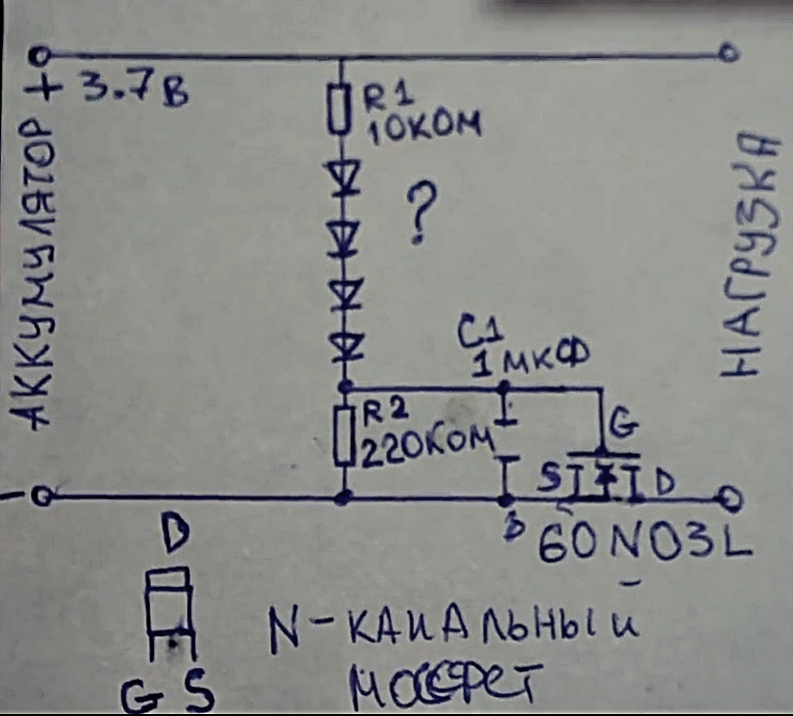 + 3.7В
R1
10КОМ
?
АККУМУЛЯТОР
НАГРУЗКА
C1
1МКФ
R2
220КОМ
G
S
D
-
60N03L
D
G S
N-КАНАЛЬНЫЙ
МОСФЕТ